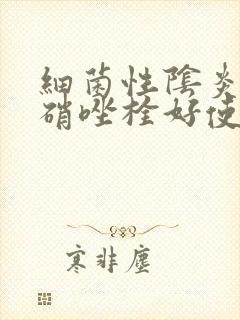 細菌性陰炎
硝唑栓好使
寒非塵